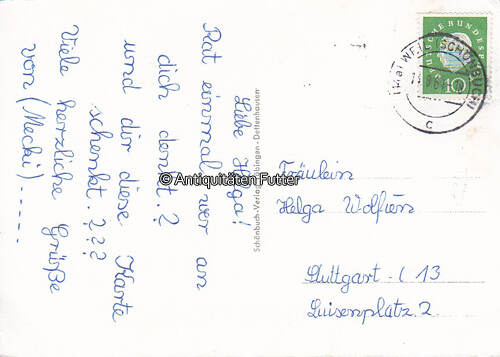 Liebe Helga!
Rat einmal wer an
dich denkt?
und dir diese Karte
schenkt. ???
Viele herzliche Grüße
von (Mecki).....
Schönbuch-Verlag Tübingen-Dettenhausen
Fräulein
Helga
Stuttgart-
Luisenplatz 2.
DEUTSCHE BUNDESPOST
10
WEIL SCHÖNBUCH
c
© Antiquitäten Futter